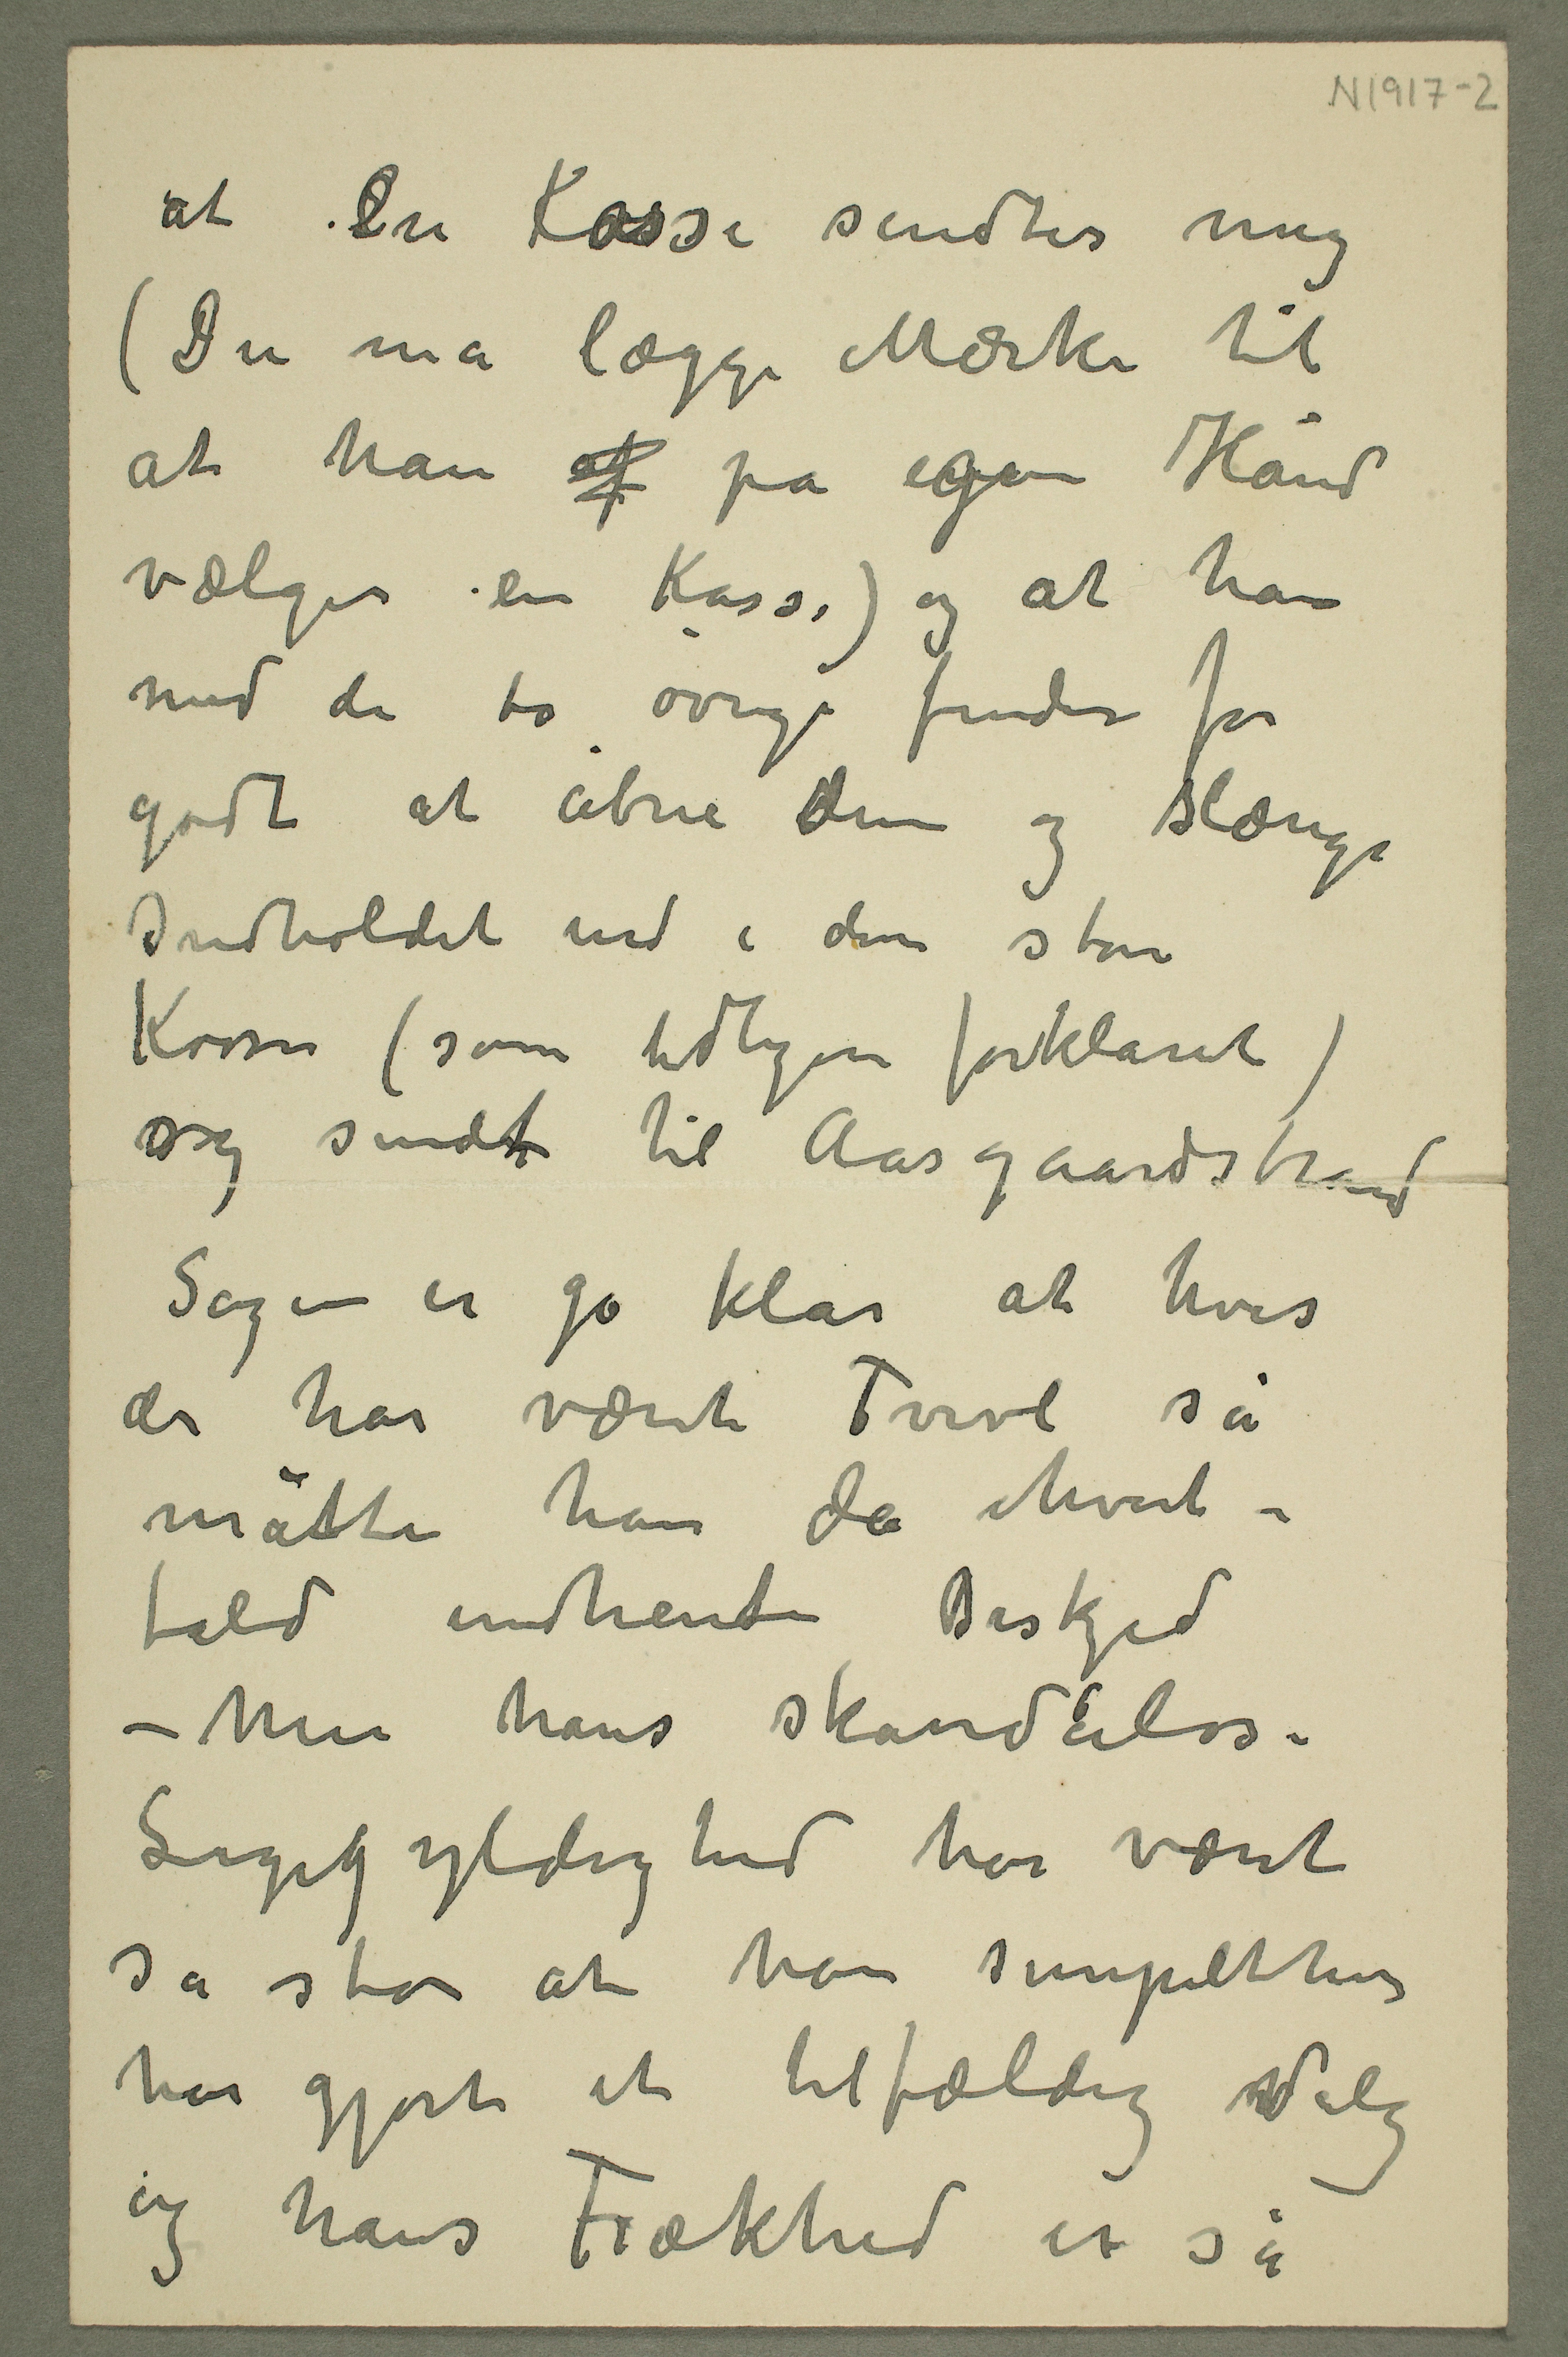 N1917-2
at En Kasse sendtes mig
(Du må lægge Mærke til
at han af på egen Hånd
vælger en Kasse) og at han
med de to øvrige finder for
godt at åbne dem og slænge
Indholdet ned i den store
Kasse (som tidligere forklaret)
og sendt til Aasgaardstrand
Sagen er jo klar at hvis
der har været Tvivl så
måtte han da ihvert-
fald indhente Beskjed
– Men hans skandaløse
Ligegyldighed har været
så stor at han simpelthen
har gjort et tilfældig Valg
og hans Frækhed er så